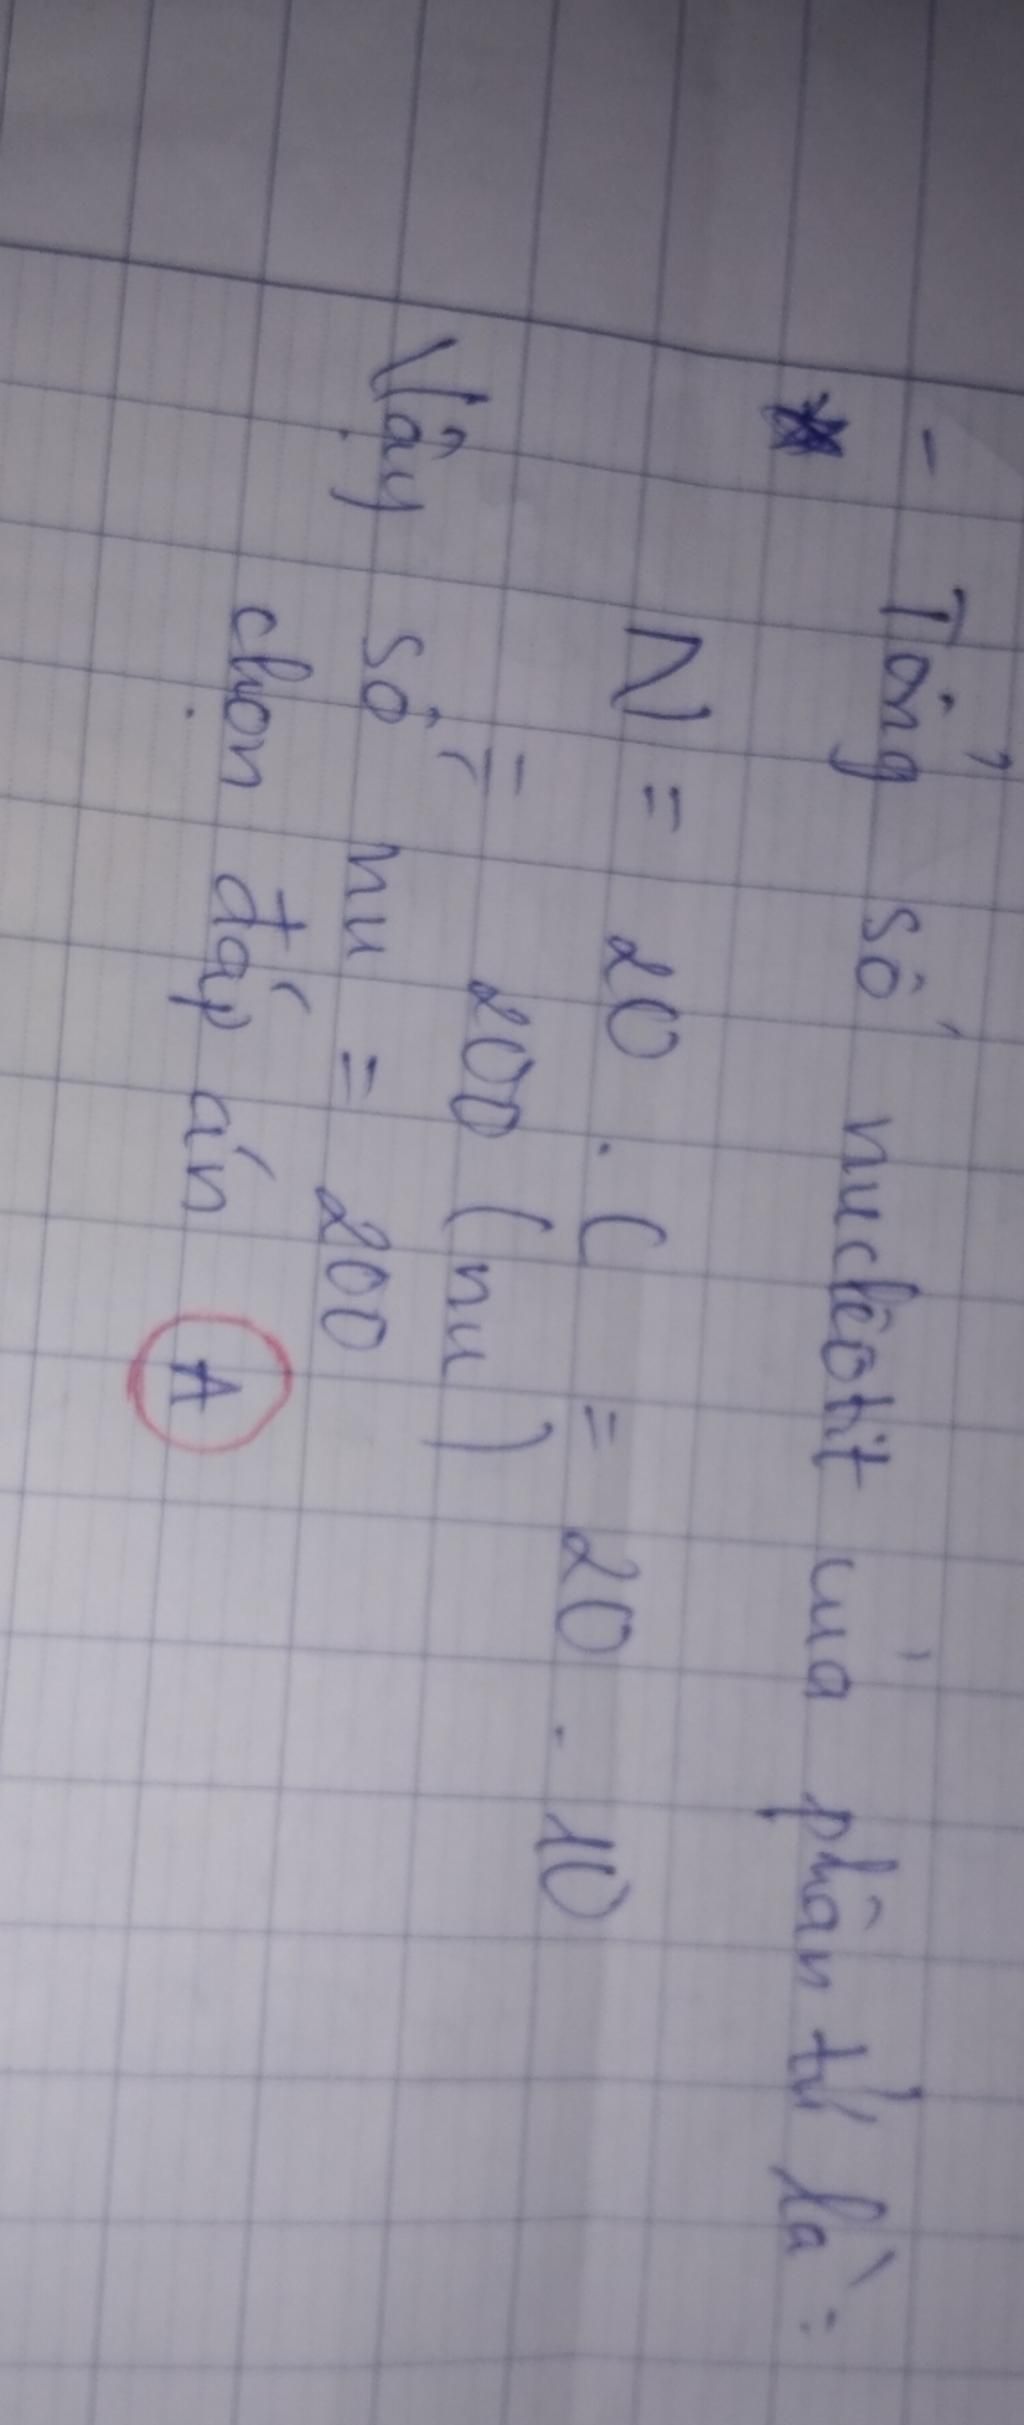 - Tổng số nuclêotit của phân tử là:
N = 20 . C = 20 . 10
= 200 (nu)
Vậy số nu = 200
chọn đáp án A